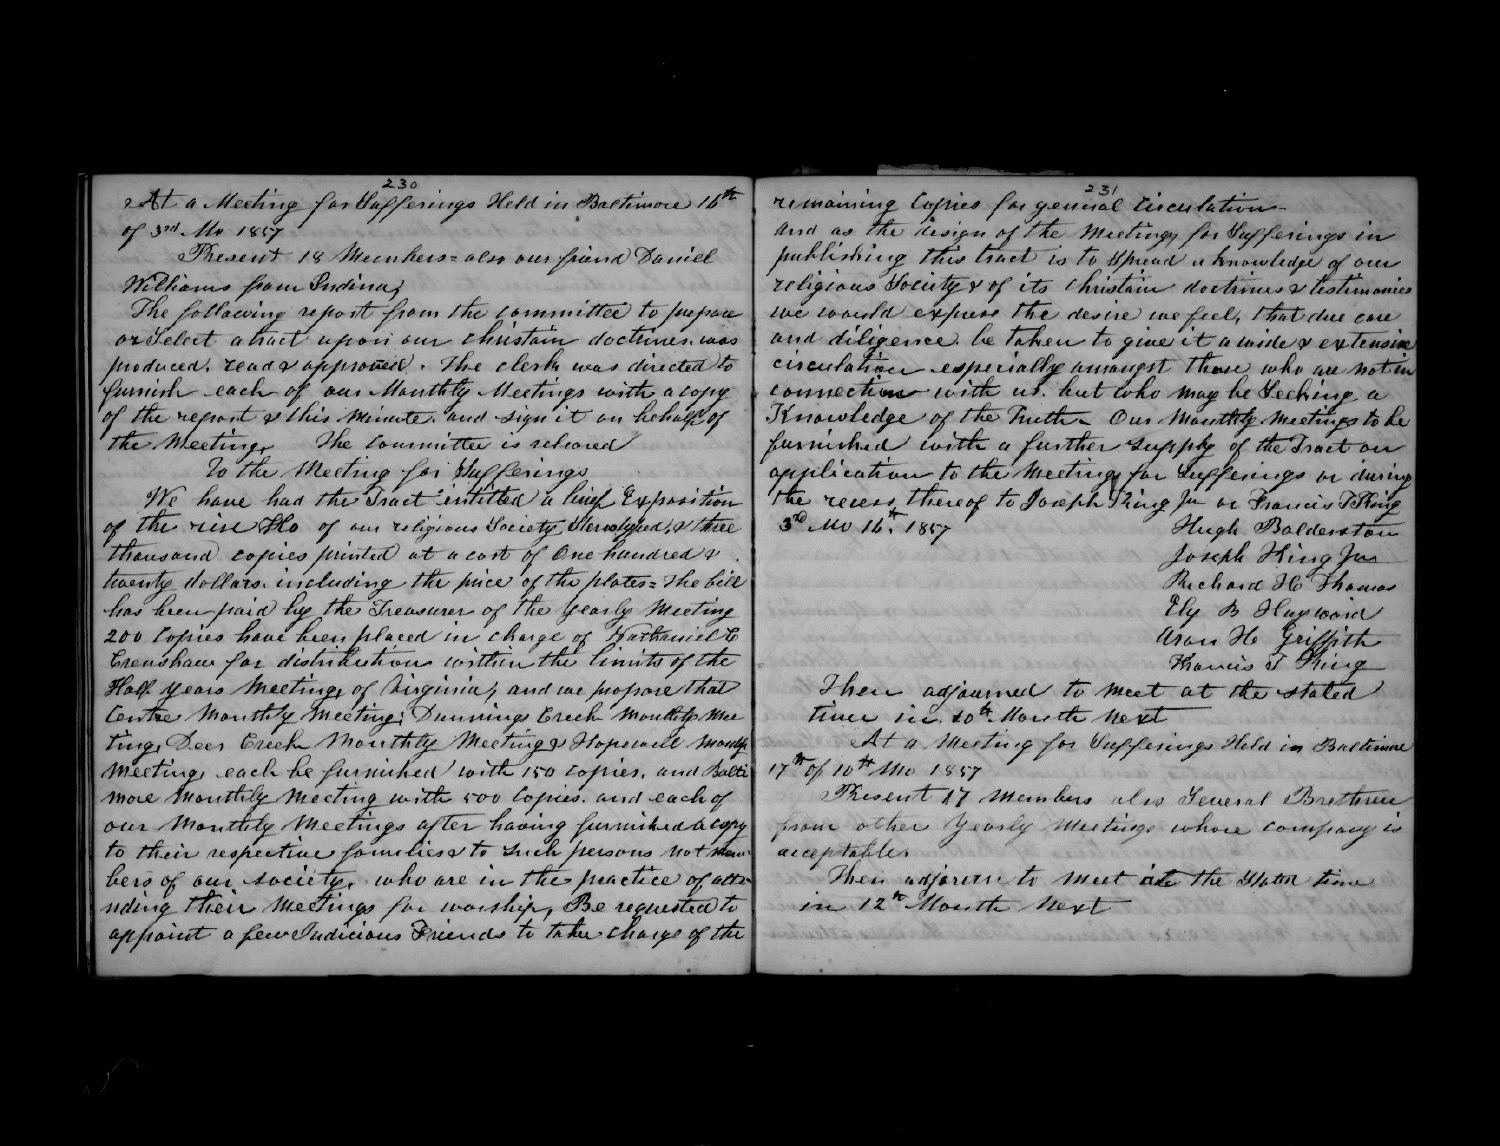 230
At a Meeting for Sufferings Held in Baltimore 16th
of 3rd Mo 1857
Present 18 Members = also our friend Daniel
Williams from Indina;
The following report from the committee to prepare
or Select a tract upon our christain doctrines. was
produced. read & approved. The clerk was directed to
furnish each of our Monthly Meetings with a copy
of the report & this Minute. and sign it on behalf of
the Meeting. The Committee is released
To the Meeting for Sufferings
We have had the Tract intitled a brief Exposition
of the rise &c of our religious Society Sterotyped, & three
thousand copies printed at a cost of One hundred &
twenty dollars. including the price of the plates = the bill
has been paid by the Treasurer of the Yearly Meeting
200 Copies have been placed in charge of Nathaniel C
Crenshaw for distribution within the limits of the
Half Years Meeting, of Virginia; and we propose that
Centre Monthly Meeting; Dunnings Creek Monthly Mee
ting, Deer Creek Monthly Meeting & Hopewell Monthly
Meeting, each be furnished with 150 Copies, and Balti
more Monthly Meeting with 500 Copies. and each of
our Monthly Meetings after having furnished a copy
to their respective families & to Such persons not mem
bers of our society, who are in the practice of atte
nding their Meetings for worship, Be requested to
appoint a few Judicious Friends to take charge of the
231
remaining Copies for general Circulation
and as the design of the Meeting for Sufferings in
publishing this tract is to Spread a knowledge of our
religious Society & of its christain doctrines & testimonies
we would express the desire we feel, that due care
and diligence. be taken to give it a wide & extensive
circulation especially amongst those who are not in
connection with us. but who may be Seeking a
Knowledge of the Truth – Our Monthly Meetings to be
furnished with a further Supply of the Tract on
application to the Meeting for Sufferings or during
the recess thereof to Joseph King Jur or Francis T King
3rd Mo 16th. 1857
Hugh Balderston
Joseph King Jur
Richard H Thomas
Ely B Hayward
Aron H Griffith
Francis T King
Then adjourned to meet at the stated
time in 10th Month Next
At a Meeting for Sufferings Held in Baltimore
17th of 10th Mo 1857
Present 17 Members also Several Brethren
from other Yearly Meetings whose company is
acceptable.
Then adjorn to meet at the time
in 12th Month Next